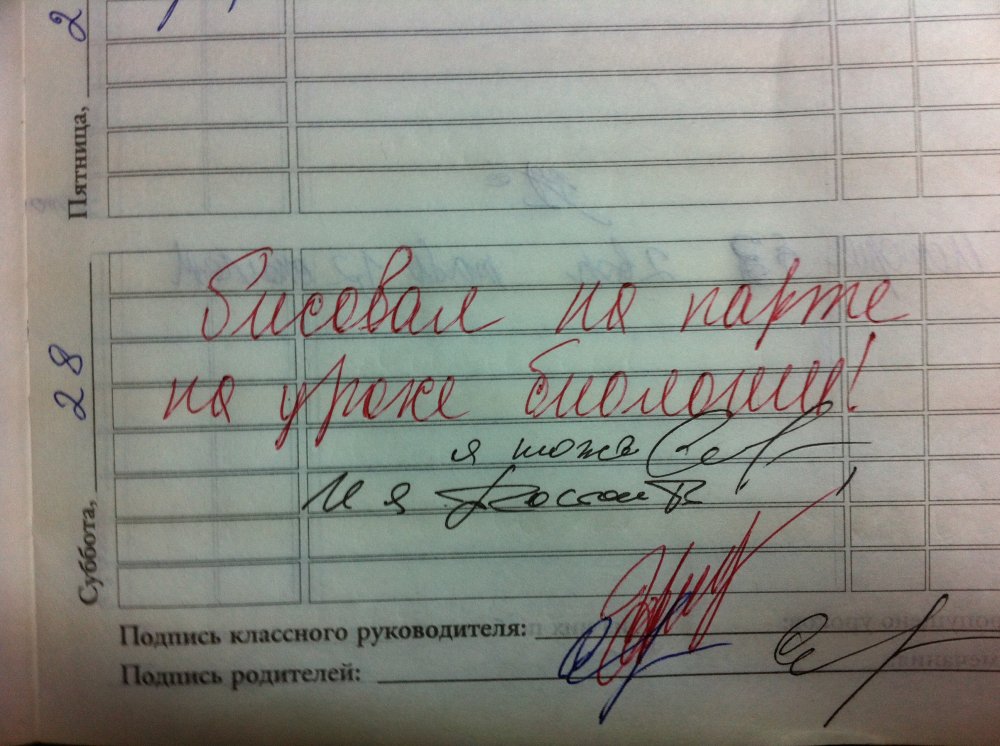 Пятница, 2
Суббота, 28
Рисовал на парте
на уроке биологии!
я тоже
И я
Подпись классного руководителя:
Подпись родителей: